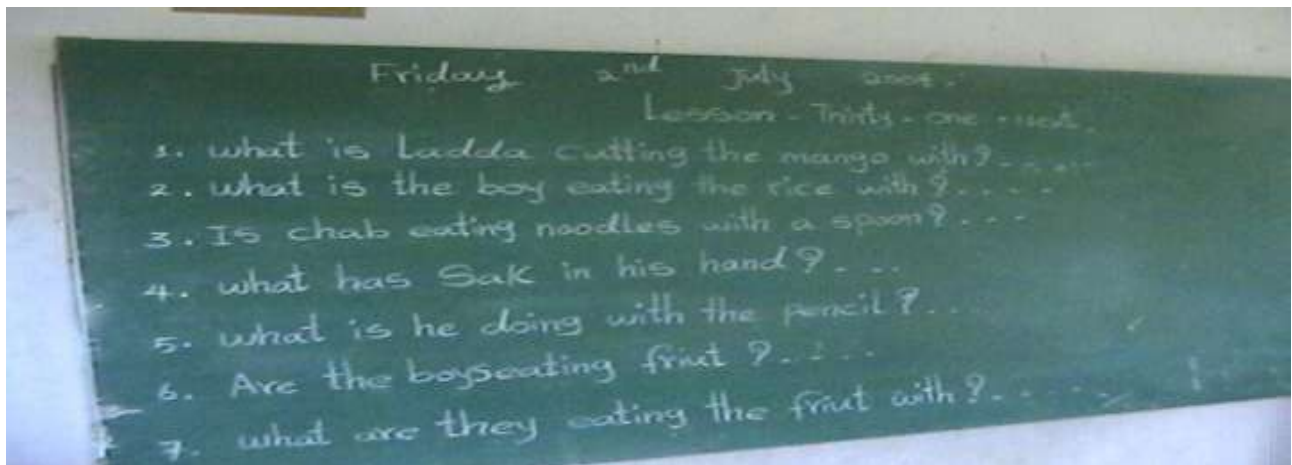 Friday 2nd July 2004.
Lesson - Thirty - one
1. what is Ladda cutting the mango with?.....
2. what is the boy eating the rice with?....
3. Is chab eating noodles with a spoon?...
4. what has Sak in his hand?...
5. what is he doing with the pencil?...
6. Are the boyseating friut ?.....
7. what are they eating the friut with?.....